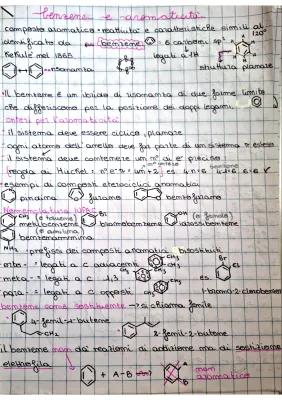 benzene e aromaticità
composto aromatico = reattività e caratteristiche simili al
identificato da → benzene 6 carboni sp² 120°
Kekulé nel 1865 legati a 1H
risonanza struttura planare
Il benzene è un ibrido di risonanza di due forme limite
che differiscono per la posizione dei doppi legami.
criteri per l'aromaticità
• il sistema deve essere ciclico, planare
• ogni atomo dell'anello deve far parte di un sistema π esteso
• il sistema deve contenere un n° di e⁻ preciso
regola di Hückel = n° e⁻ π = 4n+2
• esempi di composti eterociclici aromatici
piridina furano benzofurano
Nomenclatura IUPAC
(o toluene) Br OH (o fenolo)
metilbenzene bromobenzene idrossibenzene
(o anilina)
benzenammina
NH₂ → prefissi dei composti aromatici bisostituiti
orto- = legati a C adiacenti CH₃ CH₃
meta- = legati a C 1,3 CH₃ es Br
para- = legati a C opposti CH₃ Cl 1-bromo-2-clorobenzene
benzene come sostituente → si chiama fenile
4-fenil-1-butene
CH₃ 2-fenil-2-butene
il benzene non dà reazioni di addizione ma di sostituzione
elettrofila
+ A-B → A B non aromatico